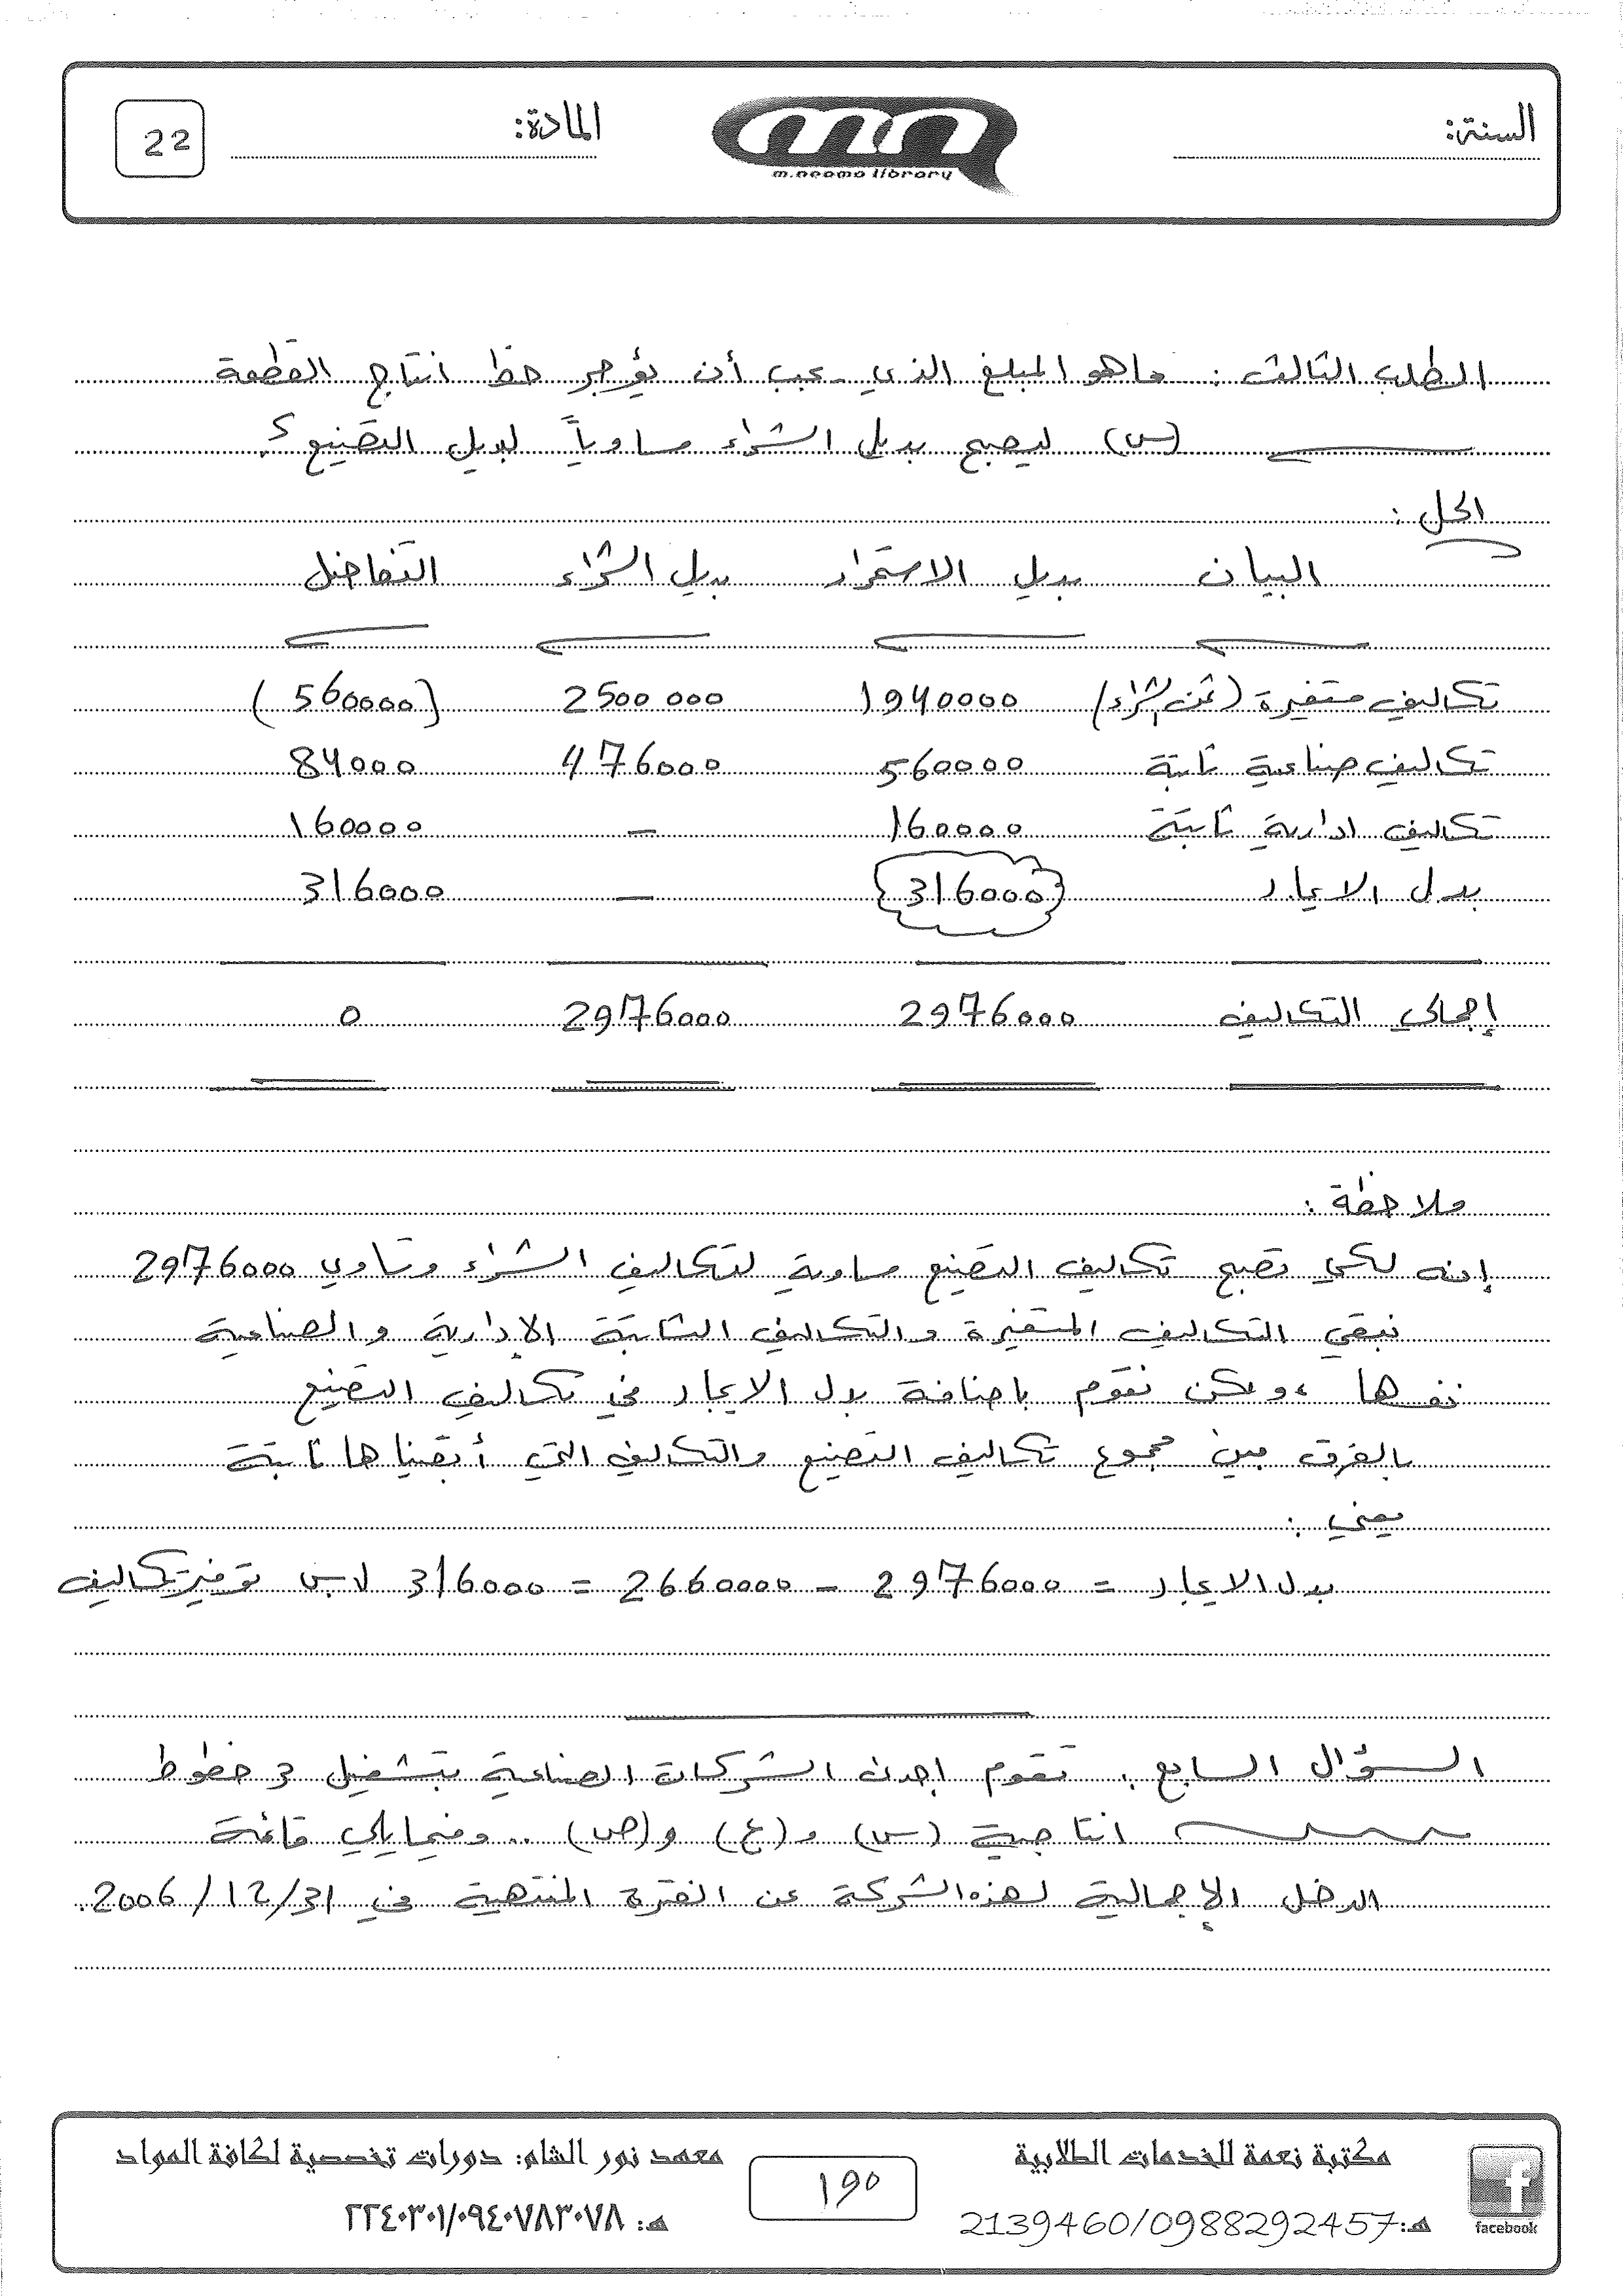 السنة:
m.neama library
المادة:
22
الطلب الثالث : ماهو المبلغ الذي يجب أن يؤجر خط انتاج القطعة
(س) ليصبح بديل الشراء مساوياً لبديل التصنيع ؟
الحل :
البيان بديل الاستمرار بديل الشراء التفاضل
تكاليف متغيرة (ثمن الشراء) 1940000 2500 000 (560000)
تكاليف صناعية ثابتة 560000 476000 84000
تكاليف ادارية ثابتة 160000 — 160000
بدل الايجار 316000 — 316000
إجمالي التكاليف 2976000 2976000 0
ملاحظة :
إنه لكي تصبح تكاليف التصنيع مساوية لتكاليف الشراء وتساوي 2976000
نبقي التكاليف المتغيرة والتكاليف الثابتة الإدارية والصناعية
نفسها ، ولكن نقوم باضافة بدل الايجار في تكاليف التصنيع
بالفرق بين مجموع تكاليف التصنيع والتكاليف التي أبقيناها ثابتة
يعني :
بدل الايجار = 2976000 - 2660000 = 316000 ل.س توفير تكاليف
السؤال السابع : تقوم احدى الشركات الصناعية بتشغيل 3 خطوط
انتاجية (س) و (ع) و (ص) .. وفيما يلي قائمة
الدخل الإجمالية لهذه الشركة عن الفترة المنتهية في 31/12/2006.
facebook
مكتبة نعمة للخدمات الطلابية
هـ: 2139460/0988292457
190
معهد نور الشام: دورات تخصصية لكافة المواد
هـ: ٢٢٤٠٣٠١/٠٩٤٠٧٨٣٠٧٨